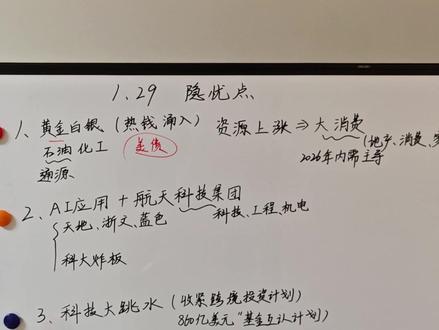 1.29 隐忧点
1、黄金白银（热钱涌入） 资源上涨⇒大消费
石油化工 美债 （地产、消费、
溯源 2026年内需主导
2、AI应用+航天科技集团
天地、浙文、蓝色 科技、工程、机电
科大炸板
3、科技大跳水（收紧跨境投资计划）
860亿美元“基金互认计划）